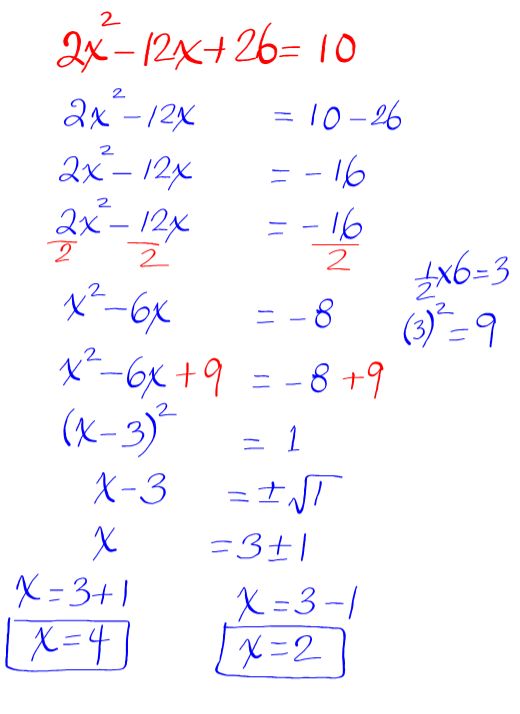 2x² - 12x + 26 = 10
2x² - 12x = 10 - 26
2x² - 12x = -16
2x²/2 - 12x/2 = -16/2
½ x 6 = 3
x² - 6x = -8
(3)² = 9
x² - 6x + 9 = -8 + 9
(x - 3)² = 1
x - 3 = ±√1
x = 3 ± 1
x = 3 + 1 x = 3 - 1
x = 4 x = 2